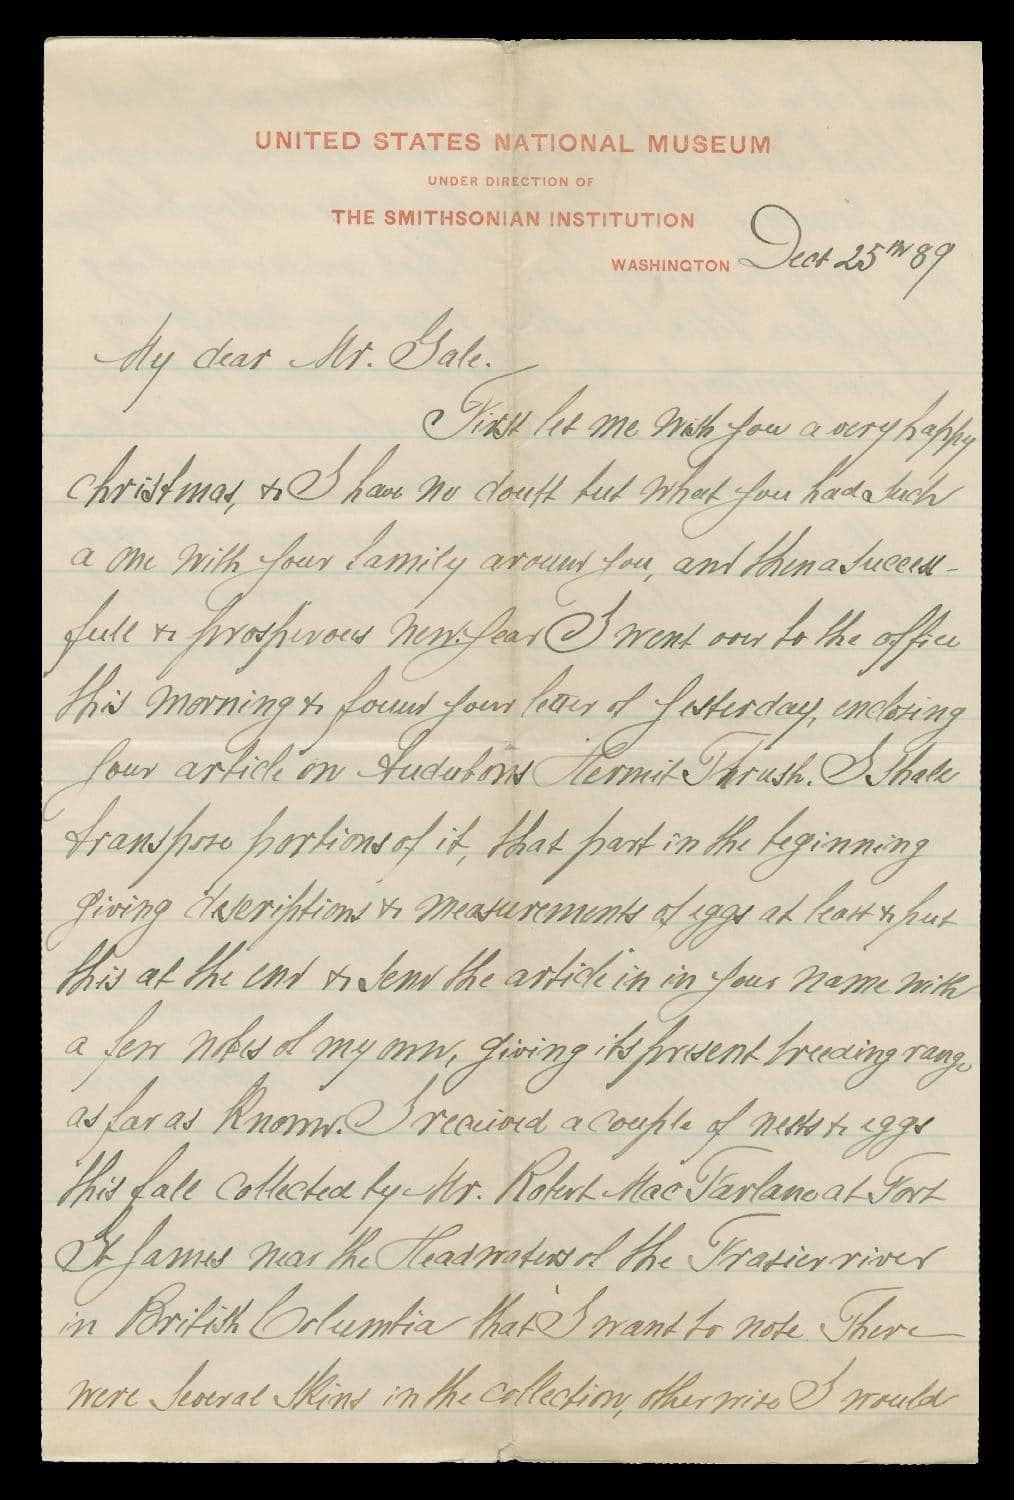 UNITED STATES NATIONAL MUSEUM
UNDER DIRECTION OF
THE SMITHSONIAN INSTITUTION
WASHINGTON Dect 25th 89
My dear Mr. Gale.
First let me wish you a very happy
christmas, & I have no doubt but what you had a such
a one with your family around you, and then a success-
full & prosperous new-year I went over to the office
this morning & found your letter of yesterday, enclosing
your article on Audubons Hermit Thrush. I shall
transpose portions of it, that part in the beginning
giving descriptions & measurements of eggs at least & put
this at the end & send the article in in your name with
a few notes of my own, giving its present breeding range
as far as known. I received a couple of nests & eggs
this fall collected by Mr. Robert MacFarlane at Fort
St James near the Headwaters of the Frasier river
in British Columbia that I want to note There
were several skins in the collection, otherwise I would